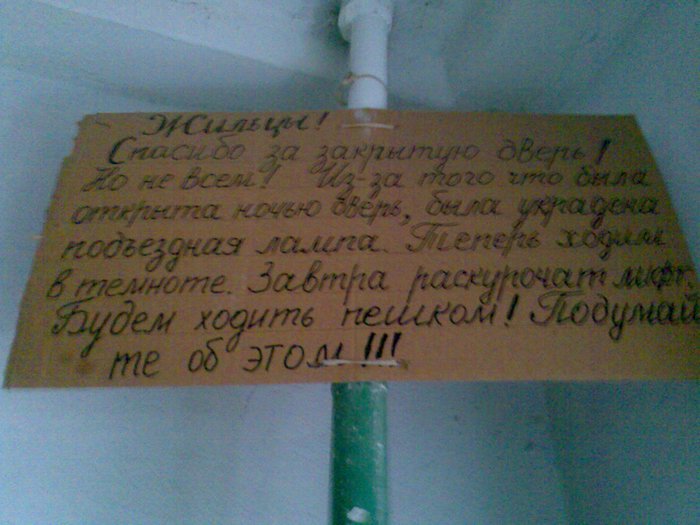 Жильцы!
Спасибо за закрытую дверь!
Но не всем! Из-за того что была
открыта ночью дверь, была украдена
подъездная лампа. Теперь ходим
в темноте. Завтра раскурочат лифт.
Будем ходить пешком! Подумай
те об этом!!!